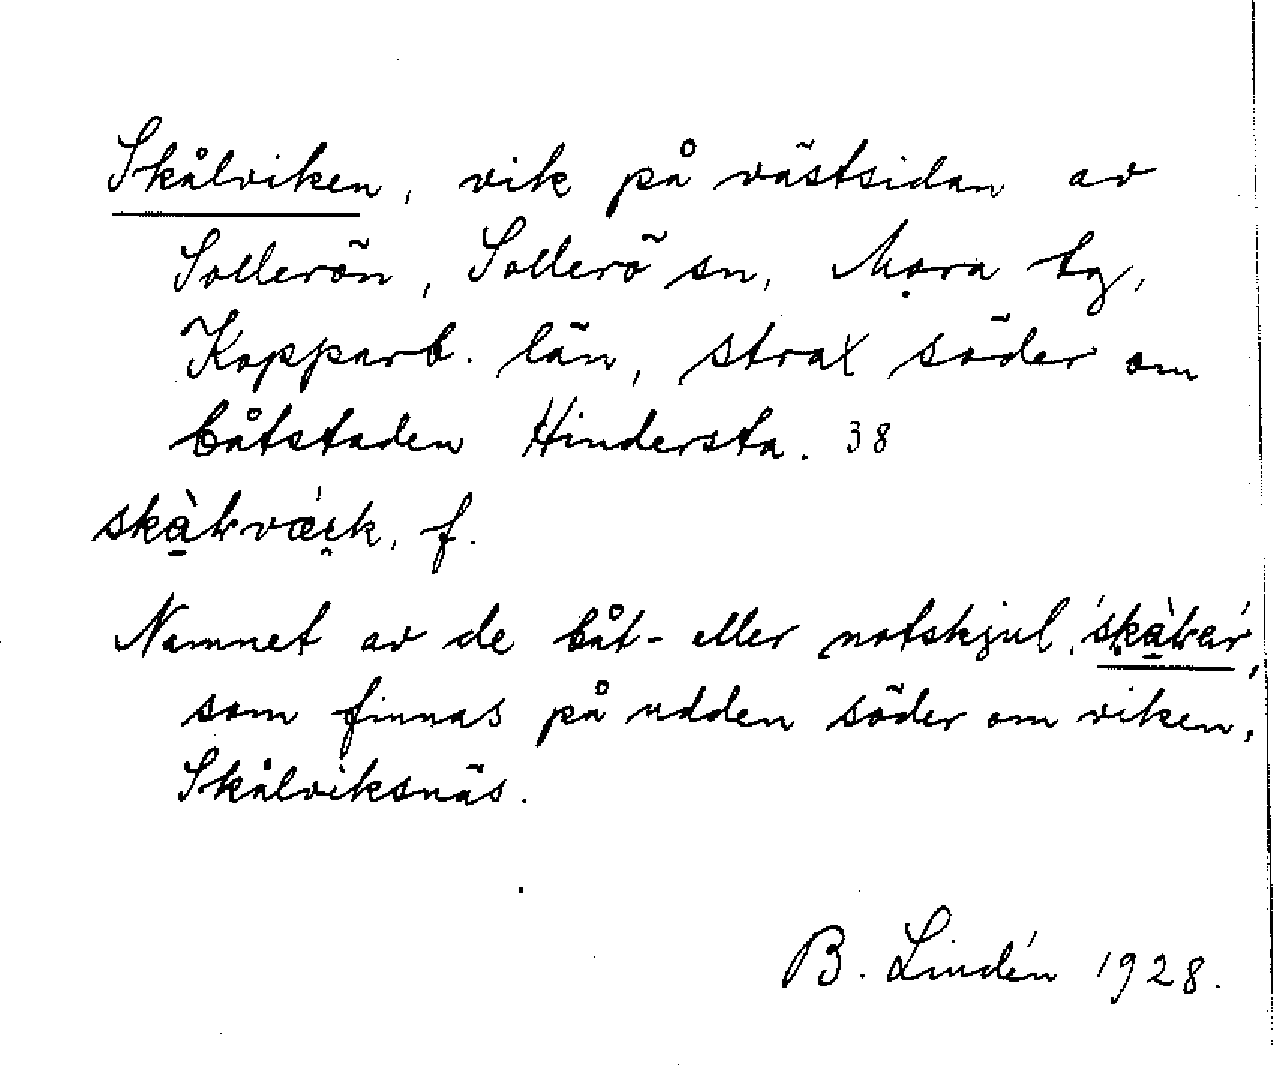 Skålviken, vik på västsidan av
Sollerön, Sollerö sn, Mora tg,
Kopparb. län, strax söder om
båtstaden Hindersta. 38
f.
Namnet av de båt- eller notskjul,
som finnas på udden söder om viken,
Skålviksnäs.
B. Lindén 1928.